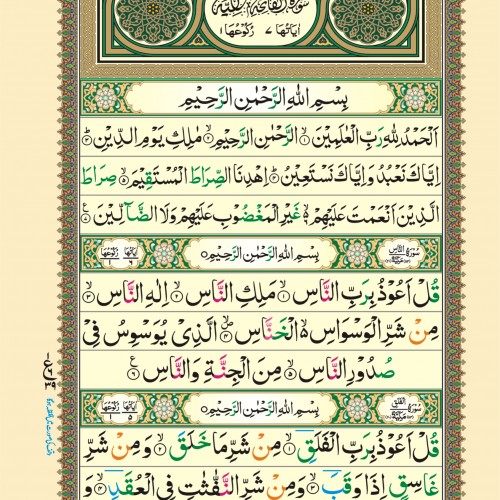 سورة الفاتحة مكية
اياتها ٧ ركوعها ١
بِسْمِ اللهِ الرَّحْمٰنِ الرَّحِيْمِ
اَلْحَمْدُ لِلّٰهِ رَبِّ الْعٰلَمِيْنَ ۙ﴿۱﴾ الرَّحْمٰنِ الرَّحِيْمِ ۙ﴿۲﴾ مٰلِكِ يَوْمِ الدِّيْنِ ؕ﴿۳﴾
اِيَّاكَ نَعْبُدُ وَاِيَّاكَ نَسْتَعِيْنُ ؕ﴿۴﴾ اِهْدِنَا الصِّرَاطَ الْمُسْتَقِيْمَ ۙ﴿۵﴾ صِرَاطَ
الَّذِيْنَ اَنْعَمْتَ عَلَيْهِمْ ۙ۬﴿۶﴾ غَيْرِ الْمَغْضُوْبِ عَلَيْهِمْ وَلَا الضَّآلِّيْنَ ﴿۷﴾
سورة الناس
بِسْمِ اللهِ الرَّحْمٰنِ الرَّحِيْمِ
اياتها ٦ ركوعها ١
قُلْ اَعُوْذُ بِرَبِّ النَّاسِ ۙ﴿۱﴾ مَلِكِ النَّاسِ ۙ﴿۲﴾ اِلٰهِ النَّاسِ ۙ﴿۳﴾
مِنْ شَرِّ الْوَسْوَاسِ ۬ۙ الْخَنَّاسِ ۪ۙ﴿۴﴾ الَّذِيْ يُوَسْوِسُ فِيْ
صُدُوْرِ النَّاسِ ۙ﴿۵﴾ مِنَ الْجِنَّةِ وَالنَّاسِ ﴿۶﴾
سورة الفلق
بِسْمِ اللهِ الرَّحْمٰنِ الرَّحِيْمِ
اياتها ٥ ركوعها ١
قُلْ اَعُوْذُ بِرَبِّ الْفَلَقِ ۙ﴿۱﴾ مِنْ شَرِّ مَا خَلَقَ ۙ﴿۲﴾ وَمِنْ شَرِّ
غَاسِقٍ اِذَا وَقَبَ ۙ﴿۳﴾ وَمِنْ شَرِّ النَّفّٰثٰتِ فِي الْعُقَدِ ۙ﴿۴﴾ وَ